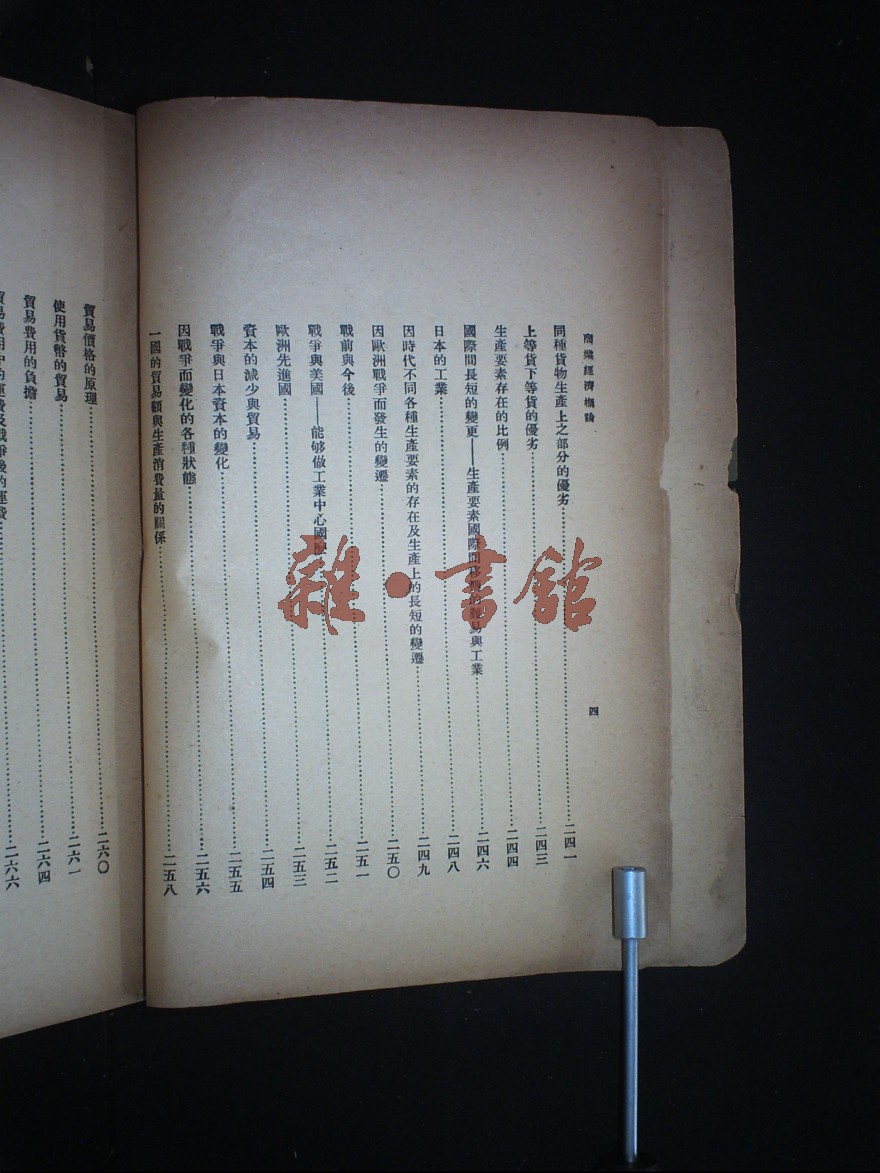 商業經濟概論
四
同種貨物生產上之部分的優劣……二四一
上等貨下等貨的優劣……二四三
生產要素存在的比例……二四四
國際間長短的變更——生產要素國際間 易與工業……二四六
日本的工業……二四八
因時代不同各種生產要素的存在及生產上的長短的變遷……二四九
因歐洲戰爭而發生的變遷……二五〇
戰前與今後……二五一
戰爭與美國——能够做工業中心國……二五二
歐洲先進國……二五三
資本的減少與貿易……二五四
戰爭與日本資本的變化……二五五
因戰爭而變化的各種狀態……二五六
一國的貿易額與生產消費量的關係……二五八
貿易價格的原理……二六〇
使用貨幣的貿易……二六一
貿易費用的負擔……二六四
貿易費用中的運費及戰爭後的運費……二六六
雜·書館